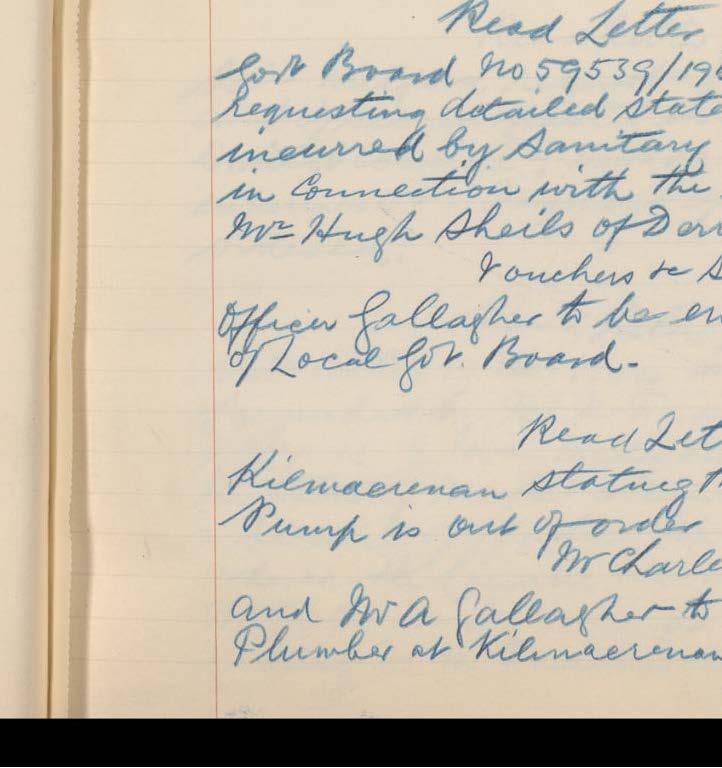 Read Letter
Govt Board No 59539/19
requesting detailed state
incurred by Sanitary
in Connection with the
Mr Hugh Sheils of Derr
Vouchers &c S
Officer Gallagher to be en
of Local Gov. Board.
Read Let
Kilmacrenan stating th
Pump is out of order
Mr Charle
and Mr A Gallagher to
Plumber at Kilmacrenan